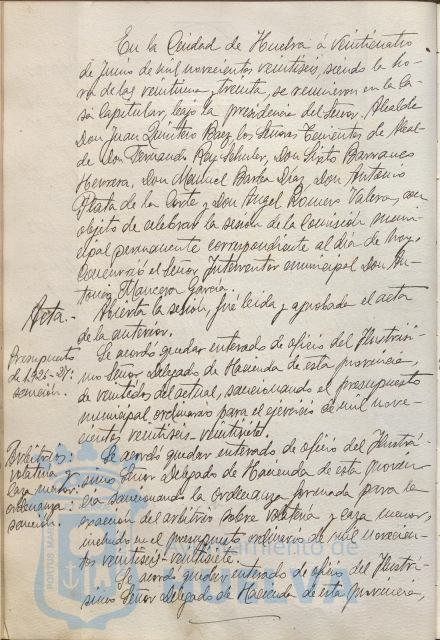 En la Ciudad de Huelva á veinticuatro
de Junio de mil novecientos veintiseis, siendo la ho-
ra de las veintiuna y treinta, se reunieron en la Ca-
sa Capitular, bajo la presidencia del Señor Alcalde
Don Juan Quintero Baez los Señores Tenientes de Alcal-
de Don Fernando Rey Don Sixto Barranco
Herrera, Don Manuel Barba Diaz, Don Antonio
Plata de la Corte y Don Angel Romero Valera, con
objeto de celebrar la sesión de la Comisión muni-
cipal permanente correspondiente al dia de hoy.
Concurrió el Señor Interventor municipal Don An-
tonio Mancera Garcia.
Acta.- Abierta la sesión, fué leida y aprobada el acta
de la anterior.
Presupuesto
de 1926-27:
sanción.
Se acordó quedar enterado de oficio del Ilustrísi-
mo Señor Delegado de Hacienda de esta provincia,
de veintidos del actual, sancionando el presupuesto
municipal ordinario para el ejercicio de mil nove-
cientos veintiseis-veintisiete.
Arbitrios:
volatería y
caza menor:
ordenanza:
sanción.
Se acordó quedar enterado de oficio del Ilustrí-
simo Señor Delegado de Hacienda de esta provin-
cia sancionando la ordenanza formada para la
exacción del arbitrio sobre volatería y caza menor,
incluido en el presupuesto ordinario de mil novecien-
tos veintiseis-veintisiete.
Se acordó quedar enterado de oficio del Ilustrí-
simo Señor Delegado de Hacienda de esta provincia,
Ayuntamiento de
HUELVA
PORTUS MARIS